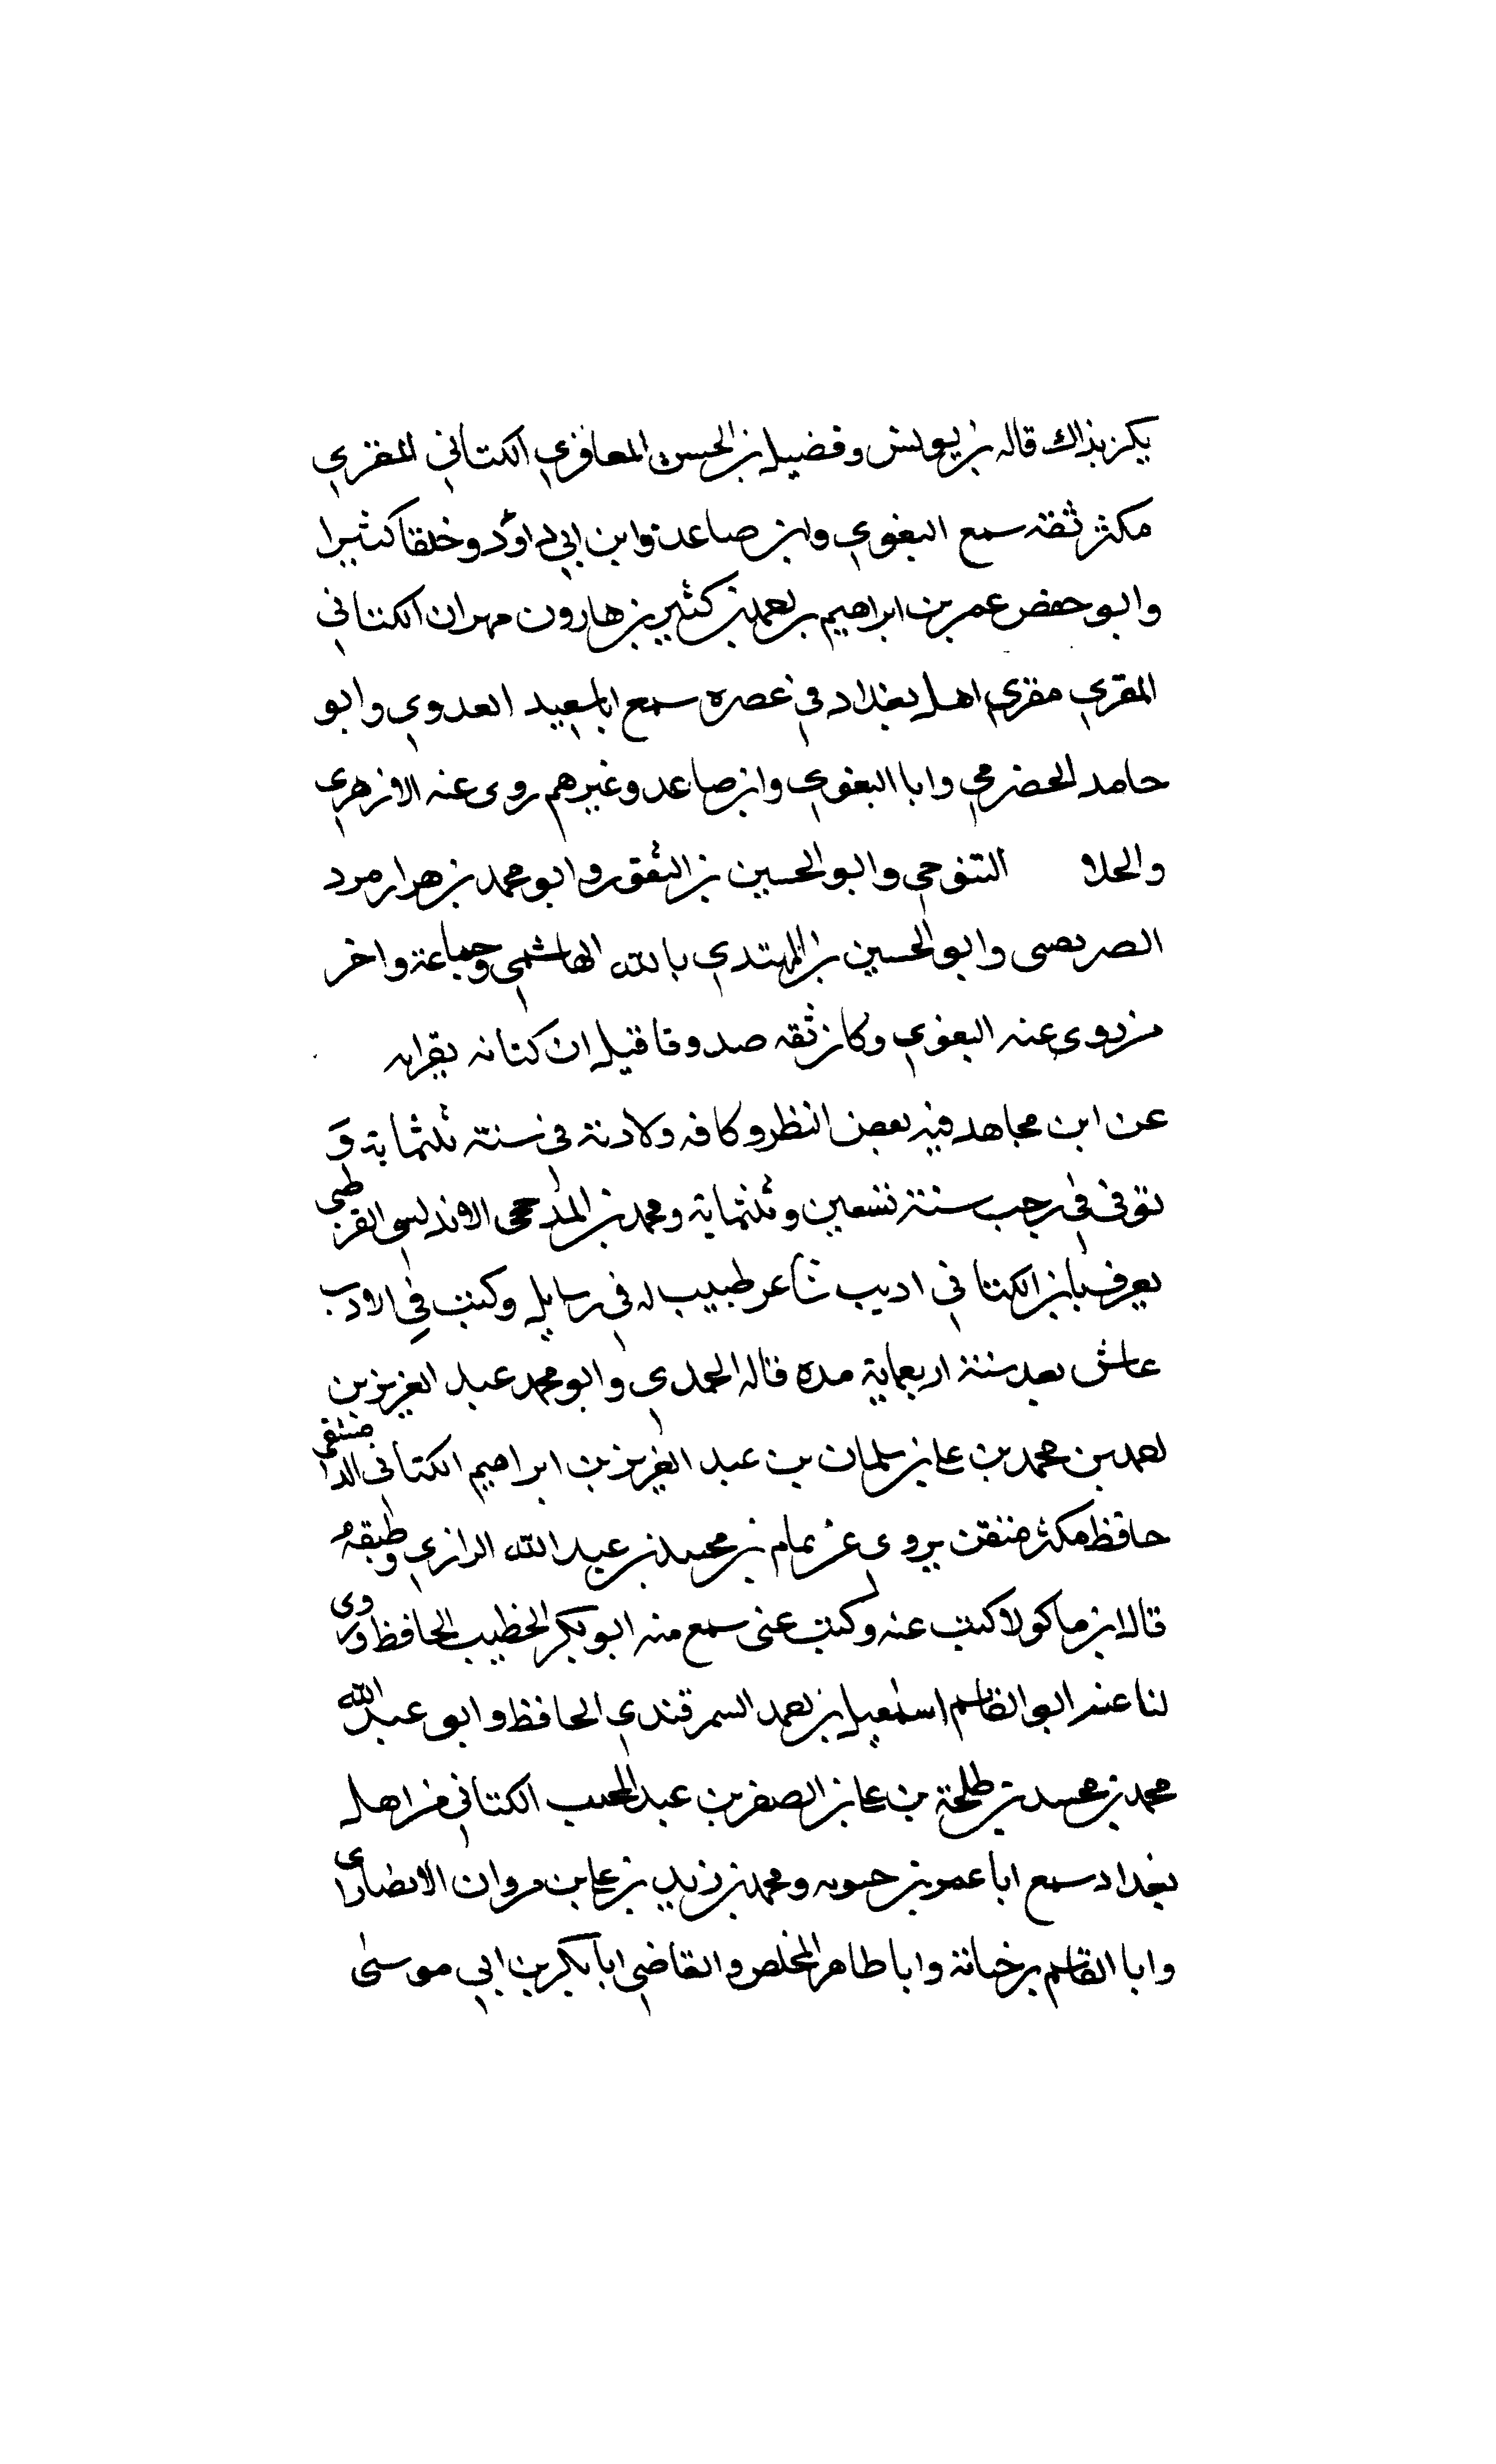 يكن بذاك قاله بن يونس وفضيل بن الحسن المعافري الكتاني المقري
مكثر ثقه سمع البغوي وابن صاعد وابن ابي داود وخلقا كثيرا
وابو حفص عمر بن ابراهيم بن احمد بن كثير بن هارون مهران الكتاني
المقري مقري اهل بغداد في عصره سمع ابا سعيد العدوي وابو
حامد الحضرمي وابا البغوي وابن صاعد وغيرهم روى عنه الازهري
والخلا التنوخي وابو الحسين بن النقور وابو محمد بن هزارمرد
الصريفيني وابو الحسين بن المهتدي بالله الهاشمي وجماعة واخر
من روى عنه البغوي وكان ثقه صدوقا قيل ان كتابه بقراه
عن ابن مجاهد فيه بعض النظر وكافه ولادته في سنة ثلثماية و
توفي في رجب سنة تسعين وثلثماية ومحمد بن المذحجي الاندلسي القرطبي
يعرف بابن الكتاني اديب شاعر طبيب له في رسايل وكتب في الادب
عاش بعد سنة اربعماية مده قاله الحمدي وابو محمد عبد العزيز بن
احمد بن محمد بن علي بن سلمان بن عبد العزيز بن ابراهيم الكتاني الدمشقي
حافظ مكثر متقن يروي عن تمام بن محمد بن عبد الله الرازي وطبقه
قال ابن ماكولا كتبت عنه وكتب عني سمع منه ابو بكر الخطيب الحافظ وروى
لنا عنه ابو القاسم اسمعيل بن احمد السمرقندي الحافظ وابو عبد الله
محمد بن محمد بن طلحة بن علي بن الصقر بن عبد المجيب الكتاني من اهل
بغداد سمع ابا عمر بن حيويه ومحمد بن زيد بن علي بن مروان الانصاري
وابا القاسم بن حبابة وابا طاهر المخلص والقاضي ابا بكر بن ابي موسى